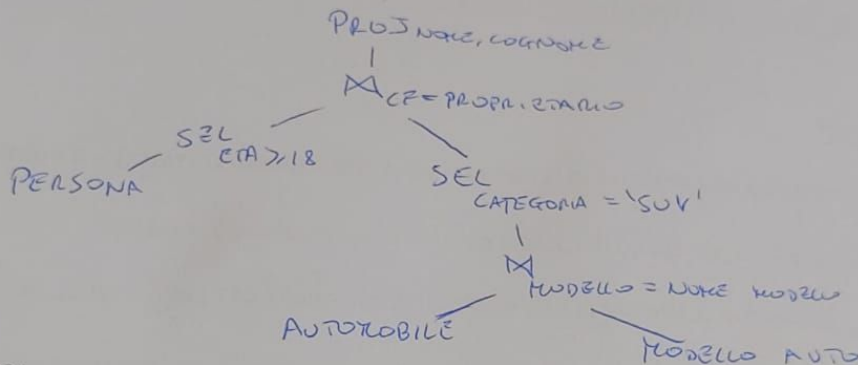 PROJ NOME, COGNOME
⋈ CF = PROPRIETARIO
SEL ETA ≥ 18
PERSONA
SEL CATEGORIA = 'SUV'
⋈ MODELLO = NOME MODELLO
AUTOMOBILE
MODELLO AUTO